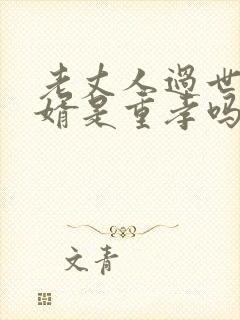 老丈人过世女
婿是重孝吗
文青